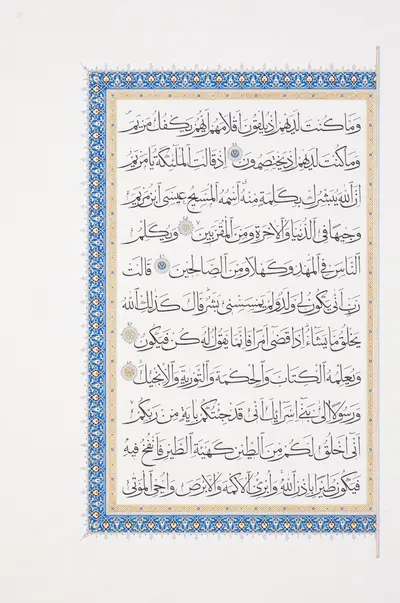 وَمَا كُنتَ لَدَيْهِمْ إِذْ يُلْقُونَ أَقْلَامَهُمْ أَيُّهُمْ يَكْفُلُ مَرْيَمَ
وَمَا كُنتَ لَدَيْهِمْ إِذْ يَخْتَصِمُونَ إِذْ قَالَتِ الْمَلَٰئِكَةُ يَا مَرْيَمُ
إِنَّ اللَّهَ يُبَشِّرُكِ بِكَلِمَةٍ مِنْهُ اسْمُهُ الْمَسِيحُ عِيسَى ابْنُ مَرْيَمَ
وَجِيهًا فِي الدُّنْيَا وَالْآخِرَةِ وَمِنَ الْمُقَرَّبِينَ وَيُكَلِّمُ
النَّاسَ فِي الْمَهْدِ وَكَهْلًا وَمِنَ الصَّالِحِينَ قَالَتْ
رَبِّ أَنَّى يَكُونُ لِي وَلَدٌ وَلَمْ يَمْسَسْنِي بَشَرٌ قَالَ كَذَٰلِكِ اللَّهُ
يَخْلُقُ مَا يَشَاءُ إِذَا قَضَى أَمْرًا فَإِنَّمَا يَقُولُ لَهُ كُنْ فَيَكُونُ
وَيُعَلِّمُهُ الْكِتَابَ وَالْحِكْمَةَ وَالتَّوْرَيةَ وَالْإِنْجِيلَ
وَرَسُولًا إِلَى بَنِي إِسْرَائِيلَ أَنِّي قَدْ جِئْتُكُمْ بِآيَةٍ مِنْ رَبِّكُمْ
أَنِّي أَخْلُقُ لَكُمْ مِنَ الطِّينِ كَهَيْئَةِ الطَّيْرِ فَأَنْفُخُ فِيهِ
فَيَكُونُ طَيْرًا بِإِذْنِ اللَّهِ وَأُبْرِئُ الْأَكْمَهَ وَالْأَبْرَصَ وَأُحْيِي الْمَوْتَى